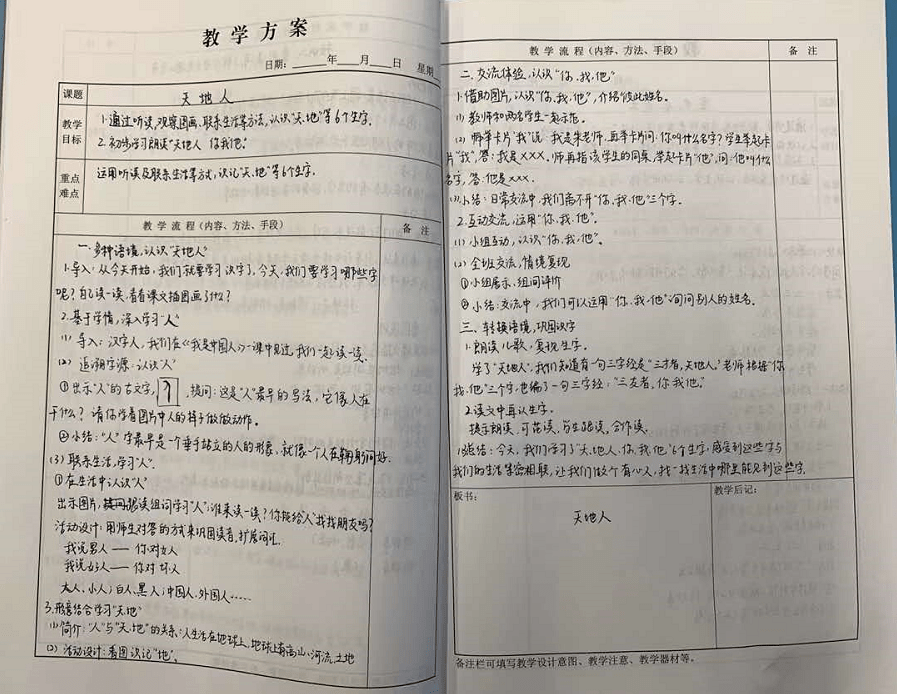 教学方案
日期：____年____月____日 星期
课题 天地人
教学目标 1.通过听读，观察图画、联系生活等方法，认识"天、地"等6个生字。
2.初步学习朗读"天地人 你我他"
重点难点 运用听读及联系生活等方式，识记"天、地"等6个生字。
教 学 流 程（内容、方法、手段） 备 注
一、多种语境，认识"天地人"
1.导入：从今天开始，我们就要学习识字了，今天，我们要学习哪些字
呢？自己读一读，看看课文插图画了什么？
2.基于学情，深入学习"人"
(1) 导入：汉字人，我们在《我是中国人》一课中见过，我们一起读一读。
(2) 追溯字源，认识"人"
①出示"人"的古文字，提问：这是"人"最早的写法，它像人在
干什么？请你学着图片中人的样子做做动作。
②小结："人"字最早是一个垂手站立的人的形象，就像一个人在
(3) 联系生活，学习"人"。
①在生活中认识"人"
出示图片，读组词学习"人"：谁来读一读？你能给"人"找找朋友吗？
活动设计：用师生对答的方式来巩固读音，扩展词汇。
我说男人——你对女人
我说好人——你对坏人
大人、小人；白人、黑人；中国人、外国人……
3.形意结合学习"天地"
(1)简介："人"与"天地"的关系：人生活在地球上，地球上有高山、河流、土地
(2) 活动设计：看图识记"地"。
教 学 流 程（内容、方法、手段） 备 注
二、交流体验，认识"你、我、他"
1.借助图片，认识"你、我、他"，介绍彼此姓名。
(1) 教师和两名学生一起示范。
(2) 师举卡片"我"说：我是朱老师，再举卡片问：你叫什么名字？学生举起卡
片"我"，答：我是XXX。师再指该学生的同桌，举起卡片"他"，问：他叫什么
名字，答：他是XXX。
(3)小结：日常交流中，我们离不开"你、我、他"三个字。
2.互动交流，运用"你、我、他"。
(1) 小组互动，认识"你、我、他"。
(2) 全班交流，情境复现
①小组展示，组间评价
②小结：交流中，我们可以运用"你、我、他"询问别人的姓名。
三、转换语境，巩固识字
1.朗读儿歌，复现生字。
学了"天地人"，我们知道有一句三字经是"三才者，天地人。"老师根据"你
我、他"三个字，也编了一句三字经："三友者，你我他。"
2.读文中再认生字。
提示朗读，可范读，与生跟读，合作读。
总结：今天，我们学习了"天、地、人、你、我、他"6个生字，感受到这些字与
我们的生活紧密相联，让我们做个有心人，找一找生活中哪里能见到这些字
板书： 教学后记：
天地人
备注栏可填写教学设计意图、教学注意、教学器材等。